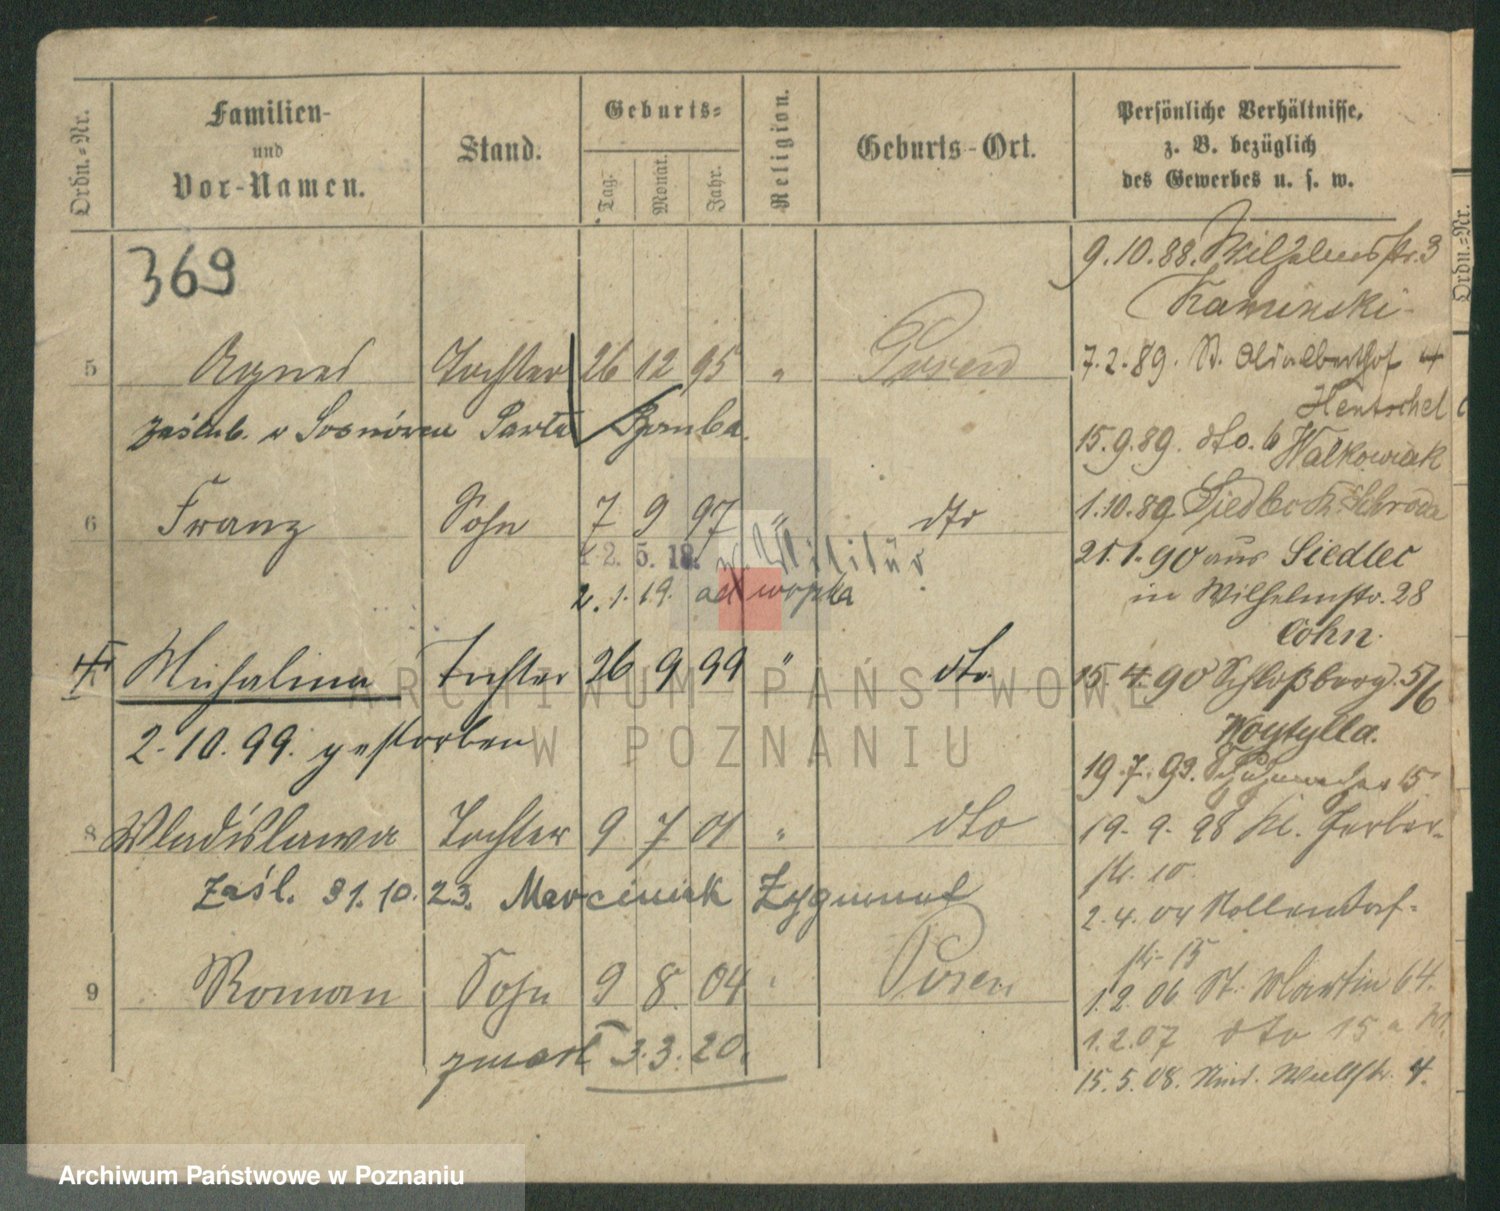 Ordn.-Nr. Familien- und Vor-Namen. Stand. Geburts- Tag. Monat. Jahr. Religion. Geburts-Ort. Persönliche Verhältnisse, z. B. bezüglich des Gewerbes u. s. w.
Ordn.-Nr.
369
9.10.88. Wilhelmstr. 3
Kaminski
5 Agnes Tochter 26 12 95 " Posen
7.2.89. St. Adalberthof 4
Hentschel
zaślub. w Sosnówcu
15.9.89. dto. 6 Walkowiak
6 Franz Sohn 7 9 97 " dto
1.10.89 Siedlec K. Schroda
12.5.18. z. Militär
21.1.90 aus Siedlec
2.1.19. z wojska
in Wilhelmstr. 28
Cohn.
7 Michalina Tochter 26 9 99 " dto.
15.4.90 Schloßberg. 5/6
2.10.99. gestorben
Woytylla.
19.7.93. Schuhmacher 15
8 Wladislawa Tochter 9 7 01 " dto
19.9.98 Kl. Gerber-
str. 10.
Zaśl. 31.10.23. Marciniak Zygmunt
2.4.04 Nollendorf-
str. 15
9 Roman Sohn 9 8 04 " Posen
1.2.06 St. Martin 64.
1.2.07 dto 15a
zmarł 3.3.20.
15.5.08. Wallstr. 4.
ARCHIWUM PAŃSTWOWE
W POZNANIU
Archiwum Państwowe w Poznaniu